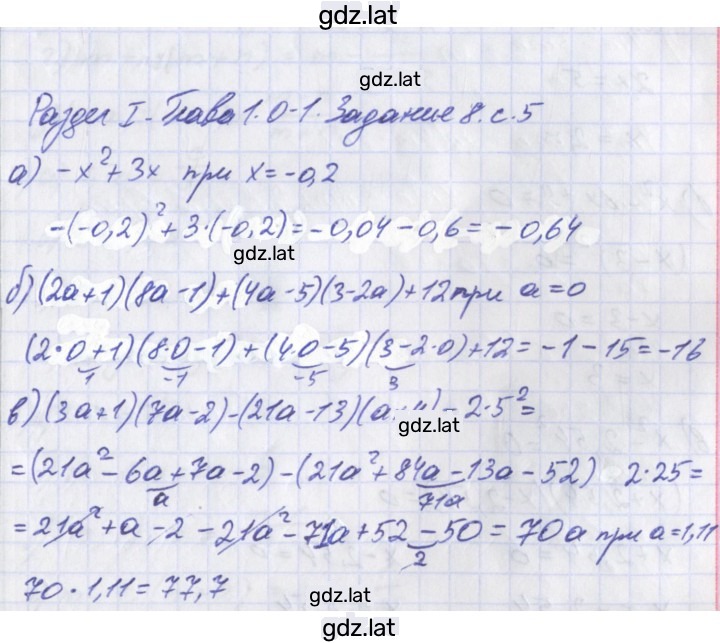 gdz.lat
gdz.lat
Раздел I. Глава 1. 0-1. Задание 8. с. 5
а) -x² + 3x при x = -0,2
-(-0,2)² + 3·(-0,2) = -0,04 - 0,6 = -0,64
gdz.lat
б) (2a+1)(8a-1)+(4a-5)(3-2a)+12 при a=0
(2·0+1)(8·0-1)+(4·0-5)(3-2·0)+12 = -1 - 15 = -16
1 -1 -5 3
в) (3a+1)(7a-2)-(21a-13)(a+4) - 2·5² =
gdz.lat
= (21a² - 6a + 7a - 2) - (21a² + 84a - 13a - 52) 2·25 =
a 71a
= 21a² + a - 2 - 21a² - 71a + 52 - 50 = 70a при a=1,11
2
70·1,11 = 77,7
gdz.lat
gdz.lat